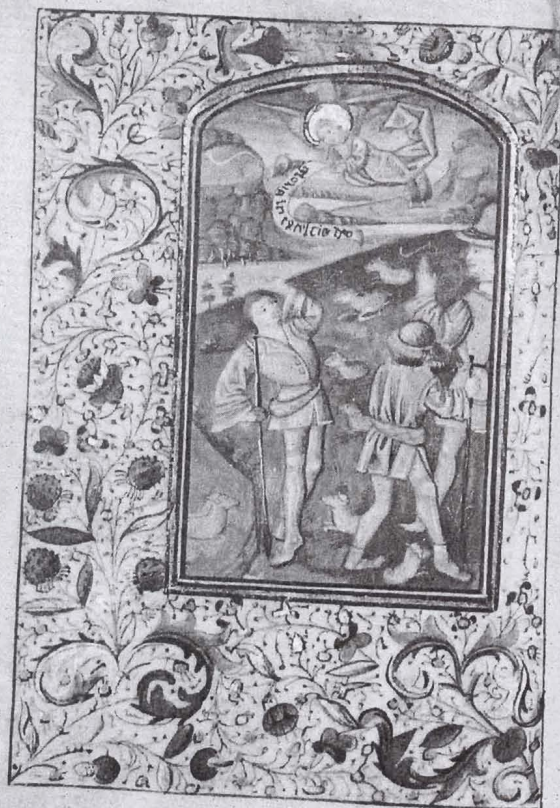 gloria in exelcis deo